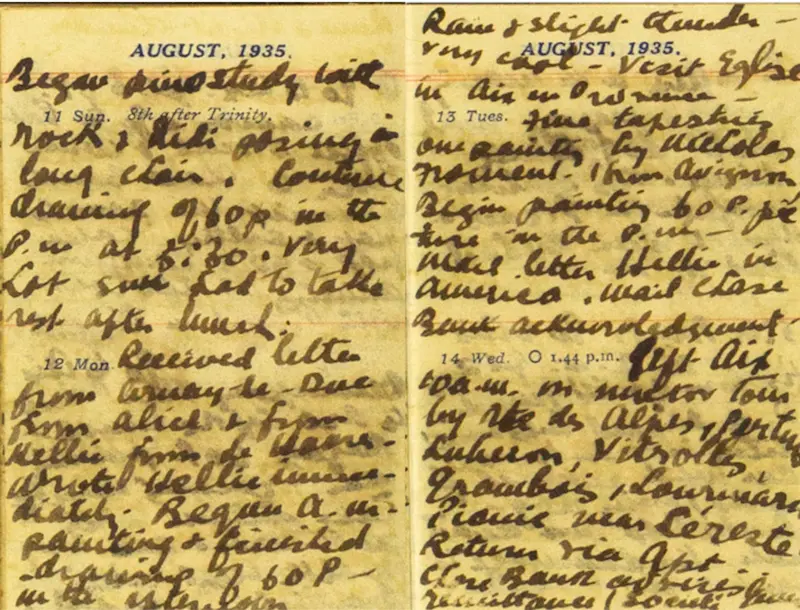 AUGUST, 1935.
Began study with
11 Sun. 8th after Trinity.
rock & Didi posing in
long chair. Continue
drawing of 60 P in the
P.M at 5:30. Very
hot sun had to take
rest after lunch.
12 Mon Received letter
from Arnay-le-Duc
from Alice & from
Nellie from Le Havre.
Wrote Nellie imme-
diately. Began A.M-
painting & finished
drawing of 60 P —
in the afternoon
Rain & slight thunder —
AUGUST, 1935.
very cool — Visit Eglise
in Aix en Provence —
13 Tues. Fine tapestries
one painting by Nicholas
Froment. (from Avignon
Begin painting 60 P. pic
ture in the P.M —
mail letter Nellie in
America. mail Chase
Bank acknowledgement
14 Wed. O 1.44 p.m. Left Aix
10 a.m. on motor tour
by Rte des Alpes, Pertuis
Luberon, Vitrolles,
Grambois, Lourmarin
Picnic near Céreste
Return via Apt
Chase Bank advises
remittance